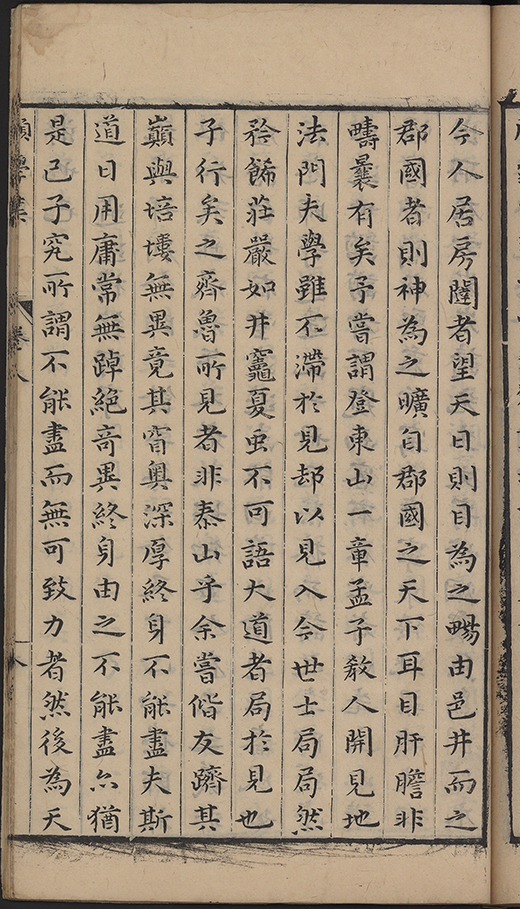 今人居房闥者望天日則目為之暢由邑井而之
郡國者則神為之曠自郡國之天下耳目肝膽非
疇曩有矣予嘗謂登東山一章孟子教人開見地
法門夫學雖不滯於見却以見入今世士局局然
矜餙莊嚴如井竈夏虫不可語大道者局於見也
子行矣之齊魯所見者非泰山乎余嘗偕友躋其
巔與培塿無異竟其窅奧深厚終身不能盡夫斯
道日用庸常無踔絶奇異終身由之不能盡亦猶
是已子究所謂不能盡而無可致力者然後為天
學 集 卷八 八